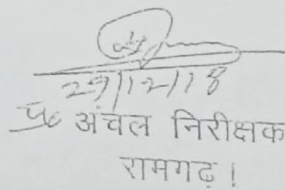 29/12/18
प्र० अंचल निरीक्षक
रामगढ़।